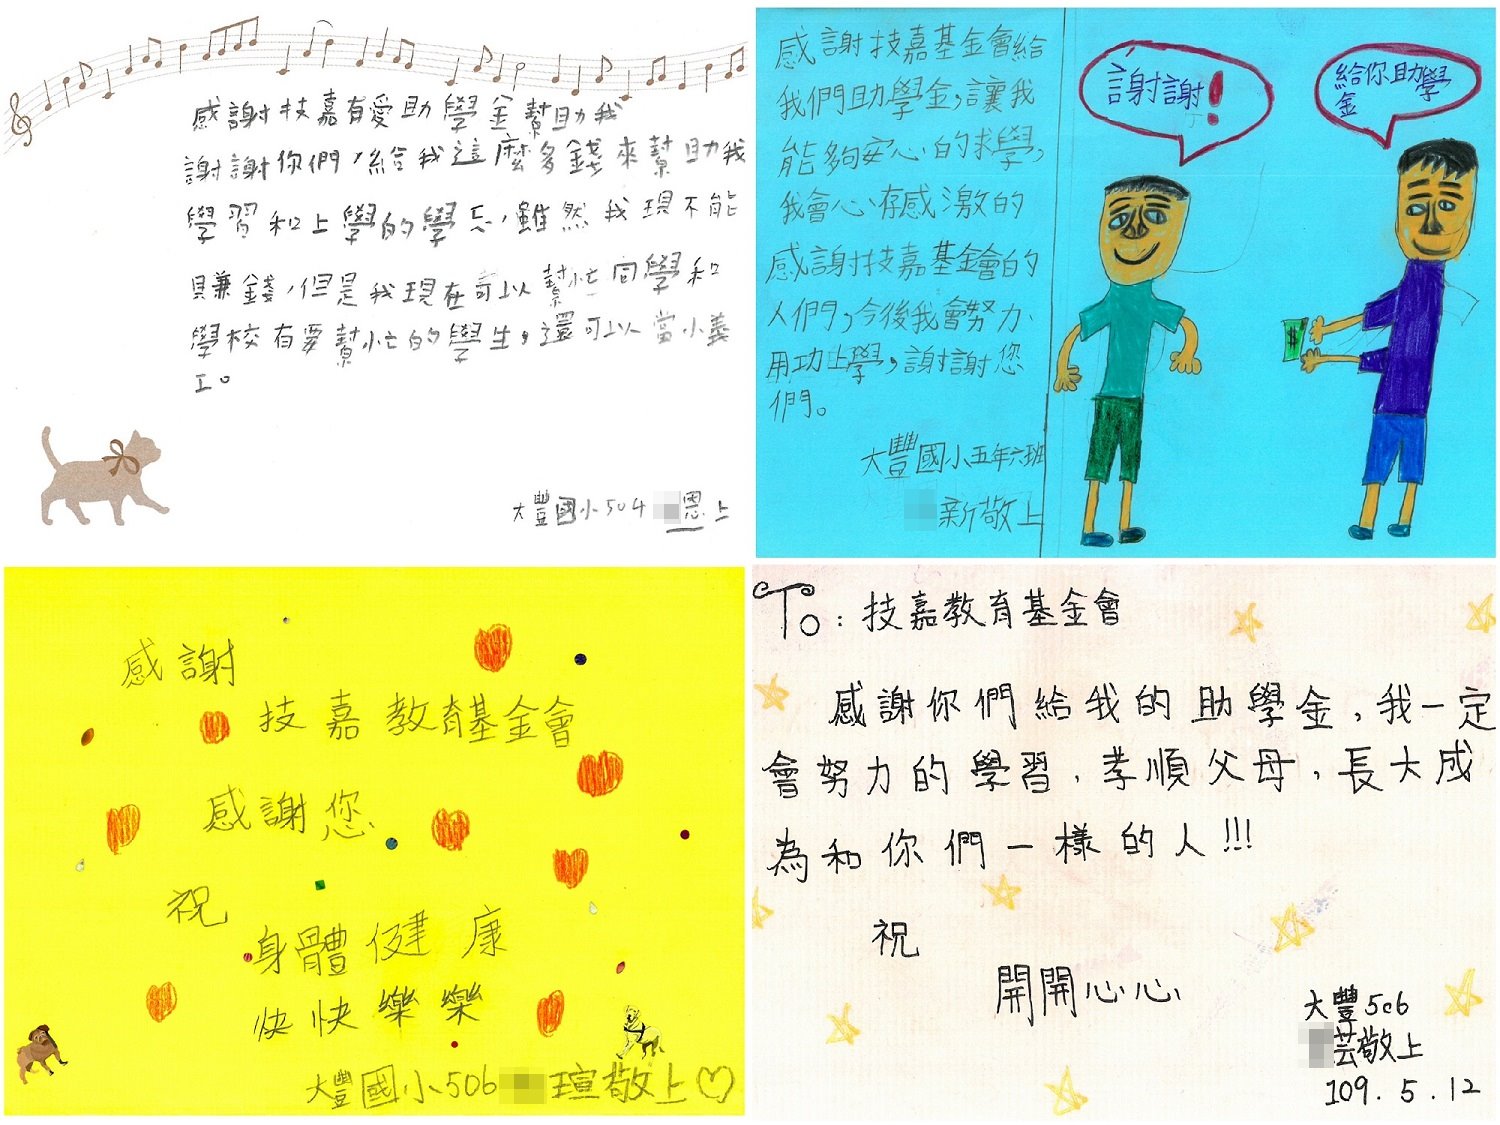 感謝技嘉有愛助學金幫助我
謝謝你們,給我這麼多錢來幫助我
學習和上學的學忘,雖然我現不能
賺錢,但是我現在可以幫忙同學和
學校有要幫忙的學生,還可以當小義
工。
大豐國小504 恩上
感謝技嘉基金會給
我們助學金,讓我
能夠安心的求學,
我會心存感激的
感謝技嘉基金會的
人們,今後我會努力
用功上學,謝謝您
們。
大豐國小五年六班
新敬上
謝謝!
給你助學
金
$
感謝
技嘉教育基金會
感謝您
祝
身體健康
快快樂樂
大豐國小506 瑄敬上♡
To:技嘉教育基金會
感謝你們給我的助學金,我一定
會努力的學習,孝順父母,長大成
為和你們一樣的人!!!
祝
開開心心
大豐506
芸敬上
109.5.12